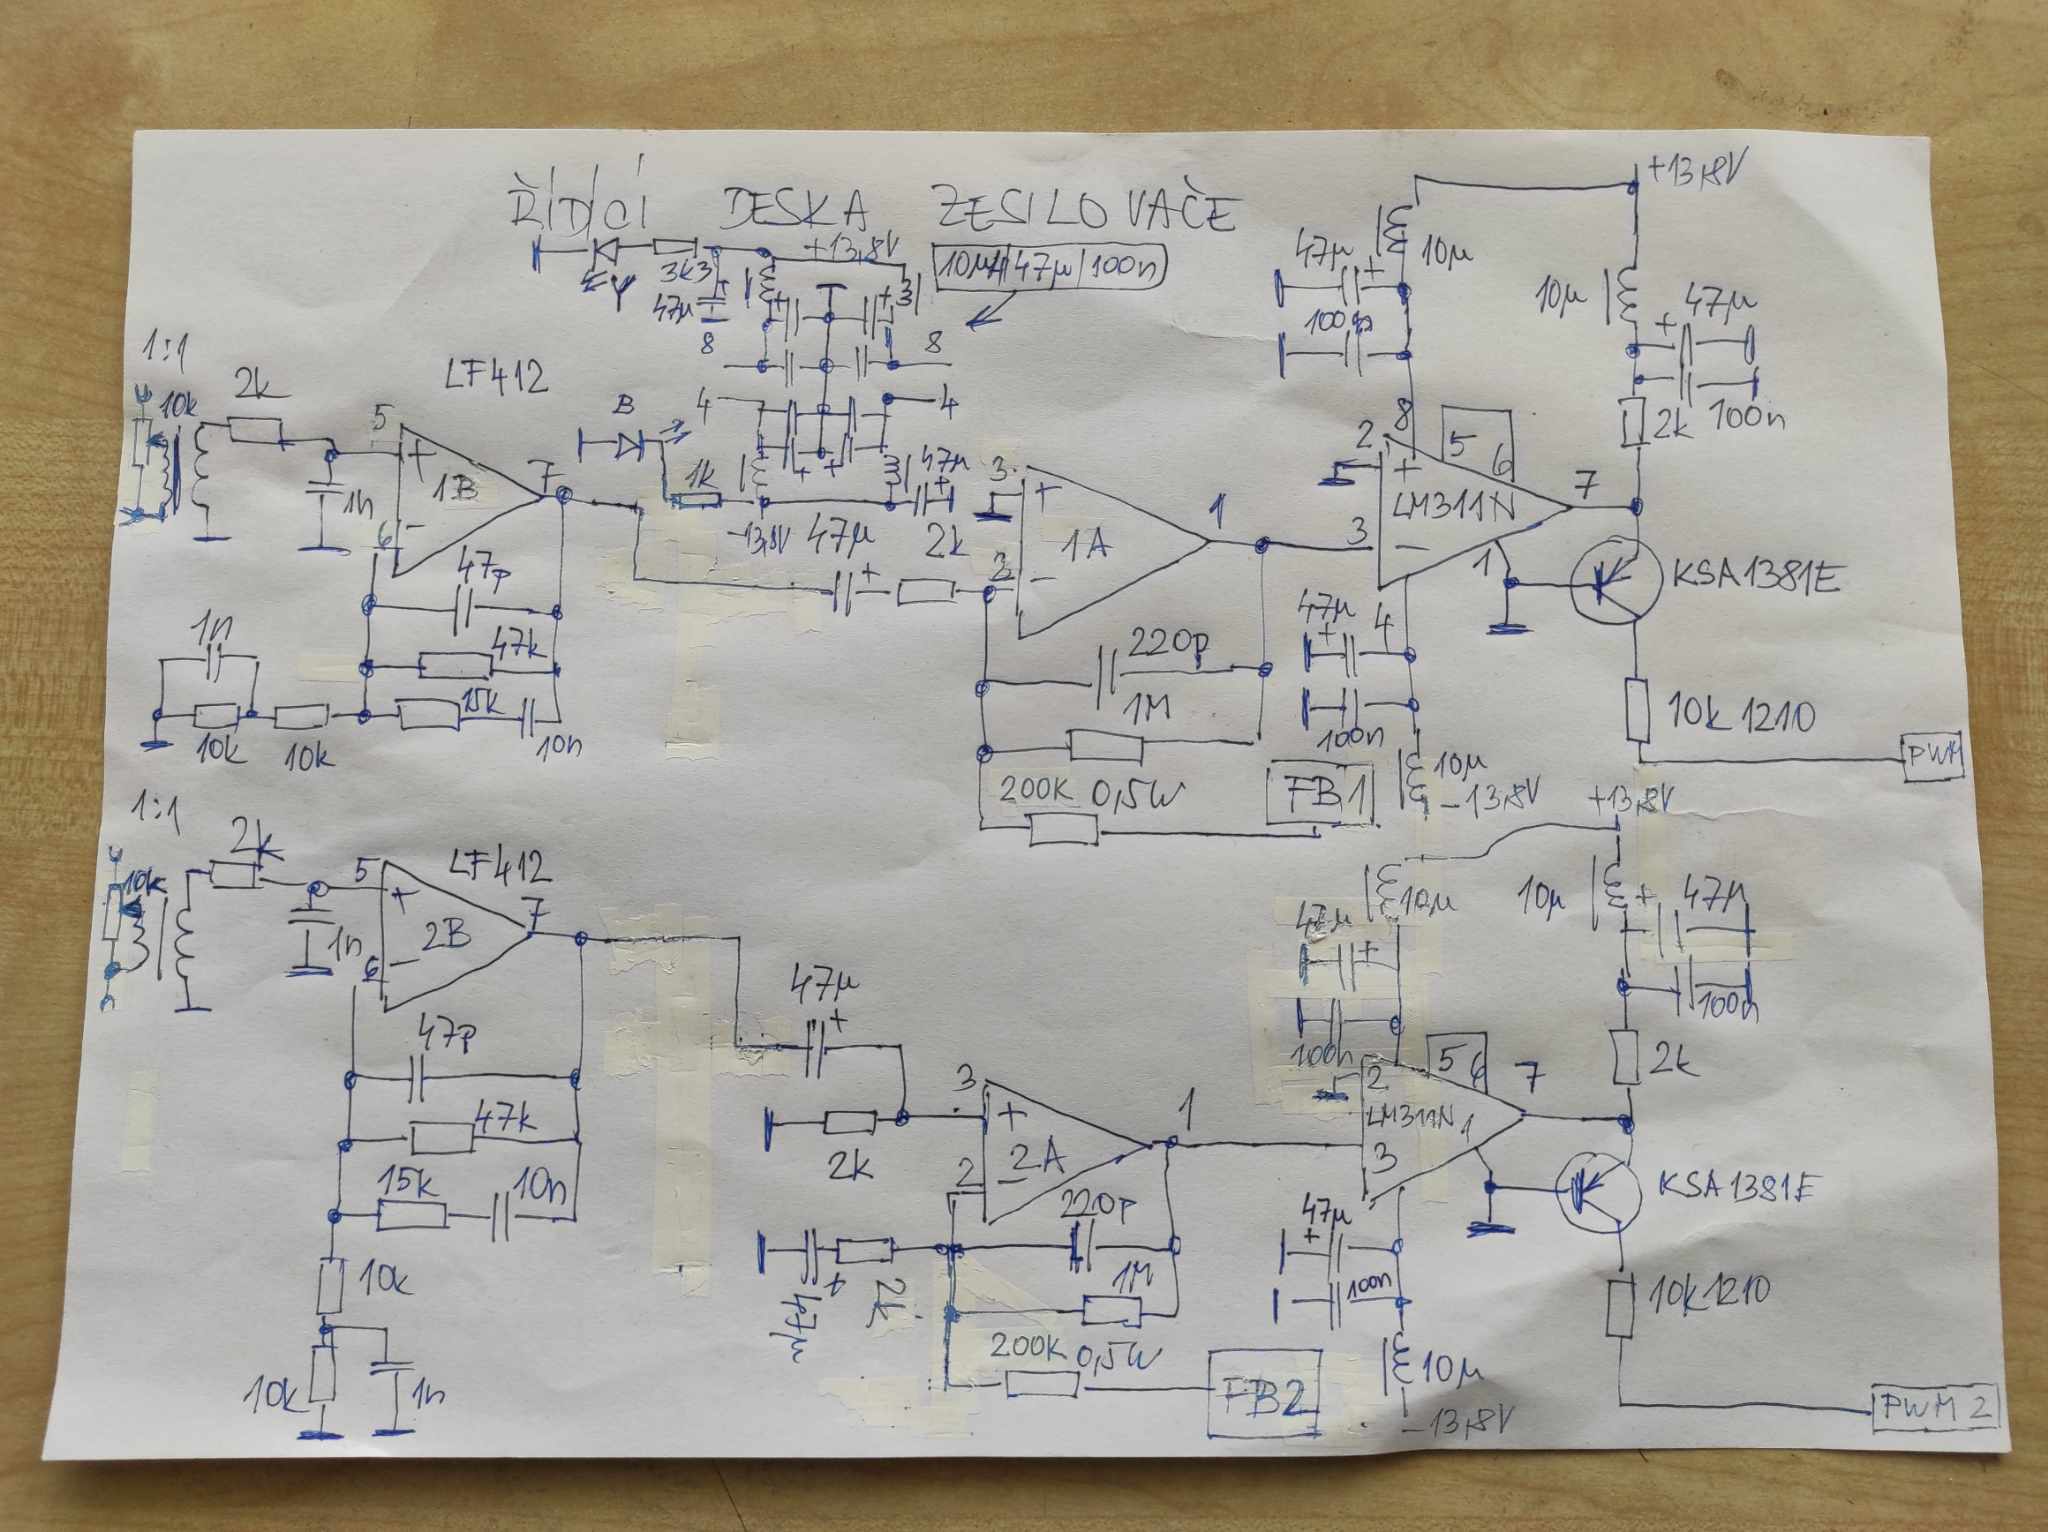 ŘÍDÍCÍ DESKA ZESILOVAČE
+13,8V
10µH/47µ/100n
3k3
47µ
8
8
4
4
B
1k
47µ
-13,8V
1:1
10k
2k
LF412
5
+
1B
7
6
-
1n
47p
47k
15k
10n
1n
10k
10k
47µ
2k
3
+
1A
1
2
-
220p
1M
200K 0,5W
FB1
+13,8V
47µ
10µ
100n
10µ
47µ
100n
2k
2
8
5
6
+
LM311N
7
3
-
1
KSA1381E
47µ
4
100n
10µ
-13,8V
10k 1210
PWM
1:1
10k
2k
LF412
5
+
2B
7
6
-
1n
47p
47k
15k
10n
10k
10k
1n
47µ
+
2k
3
+
2A
1
2
-
220p
47µ
2k
1M
200K 0,5W
FB2
+13,8V
10µ
47µ
+
10µ
47µ
+
100n
100n
2k
2
5
6
LM311N
1
7
3
KSA1381E
47µ
+
100n
10µ
-13,8V
10k 1210
PWM 2